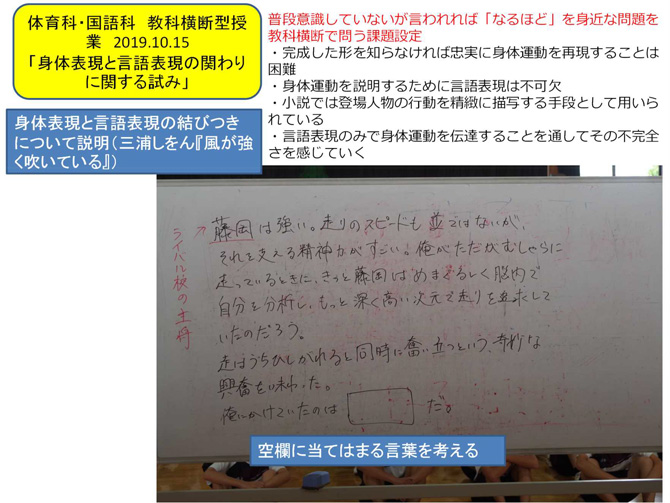 体育科・国語科　教科横断型授
業　2019.10.15
「身体表現と言語表現の関わり
に関する試み」
普段意識していないが言われれば「なるほど」を身近な問題を
教科横断で問う課題設定
・完成した形を知らなければ忠実に身体運動を再現することは
困難
・身体運動を説明するために言語表現は不可欠
・小説では登場人物の行動を精緻に描写する手段として用いら
れている
・言語表現のみで身体運動を伝達することを通してその不完全
さを感じていく
身体表現と言語表現の結びつき
について説明（三浦しをん『風が強
く吹いている』）
ライバル校の主将
藤岡は強い。走りのスピードも並ではないが、
それを支える精神力がすごい。俺がただがむしゃらに
走っているときに、きっと藤岡はめまぐるしく脳内で
自分を分析し、もっと深く高い次元で走りを追求して
いたのだろう。
走はうちひしがれると同時に奮い立つという、奇妙な
興奮を味わった。
俺にかけていたのは　　　だ。
空欄に当てはまる言葉を考える